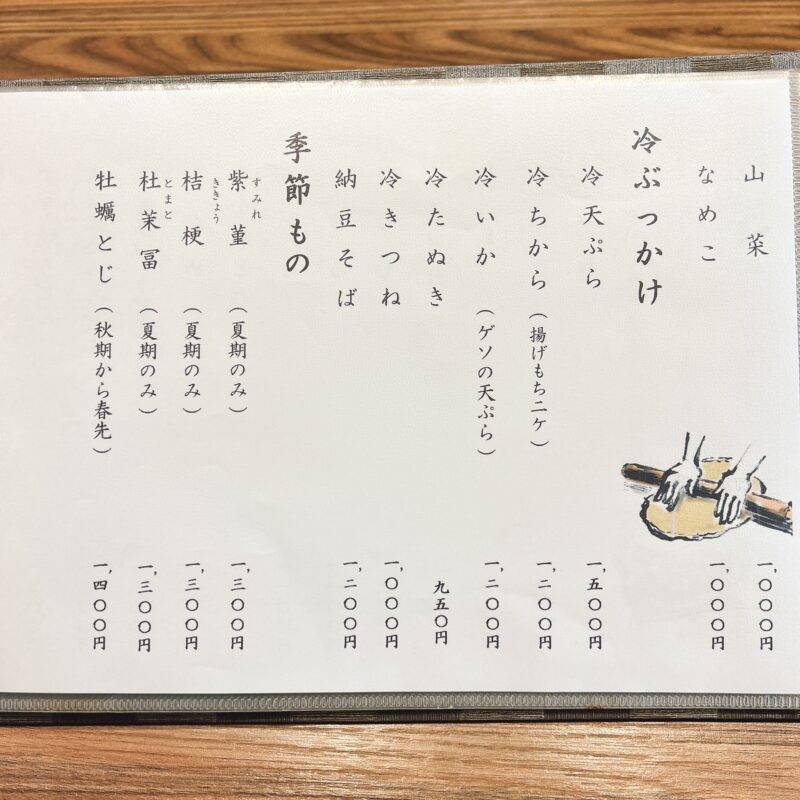 山菜 一,〇〇〇円
なめこ 一,〇〇〇円
冷ぶっかけ
冷天ぷら 一,五〇〇円
冷ちから (揚げもち二ケ) 一,二〇〇円
冷いか (ゲソの天ぷら) 一,二〇〇円
冷たぬき 九五〇円
冷きつね 一,〇〇〇円
納豆そば 一,二〇〇円
季節もの
すみれ
紫菫 (夏期のみ) 一,三〇〇円
ききょう
桔梗 (夏期のみ) 一,三〇〇円
とまと
杜茉冨 (夏期のみ) 一,三〇〇円
牡蠣とじ (秋期から春先) 一,四〇〇円